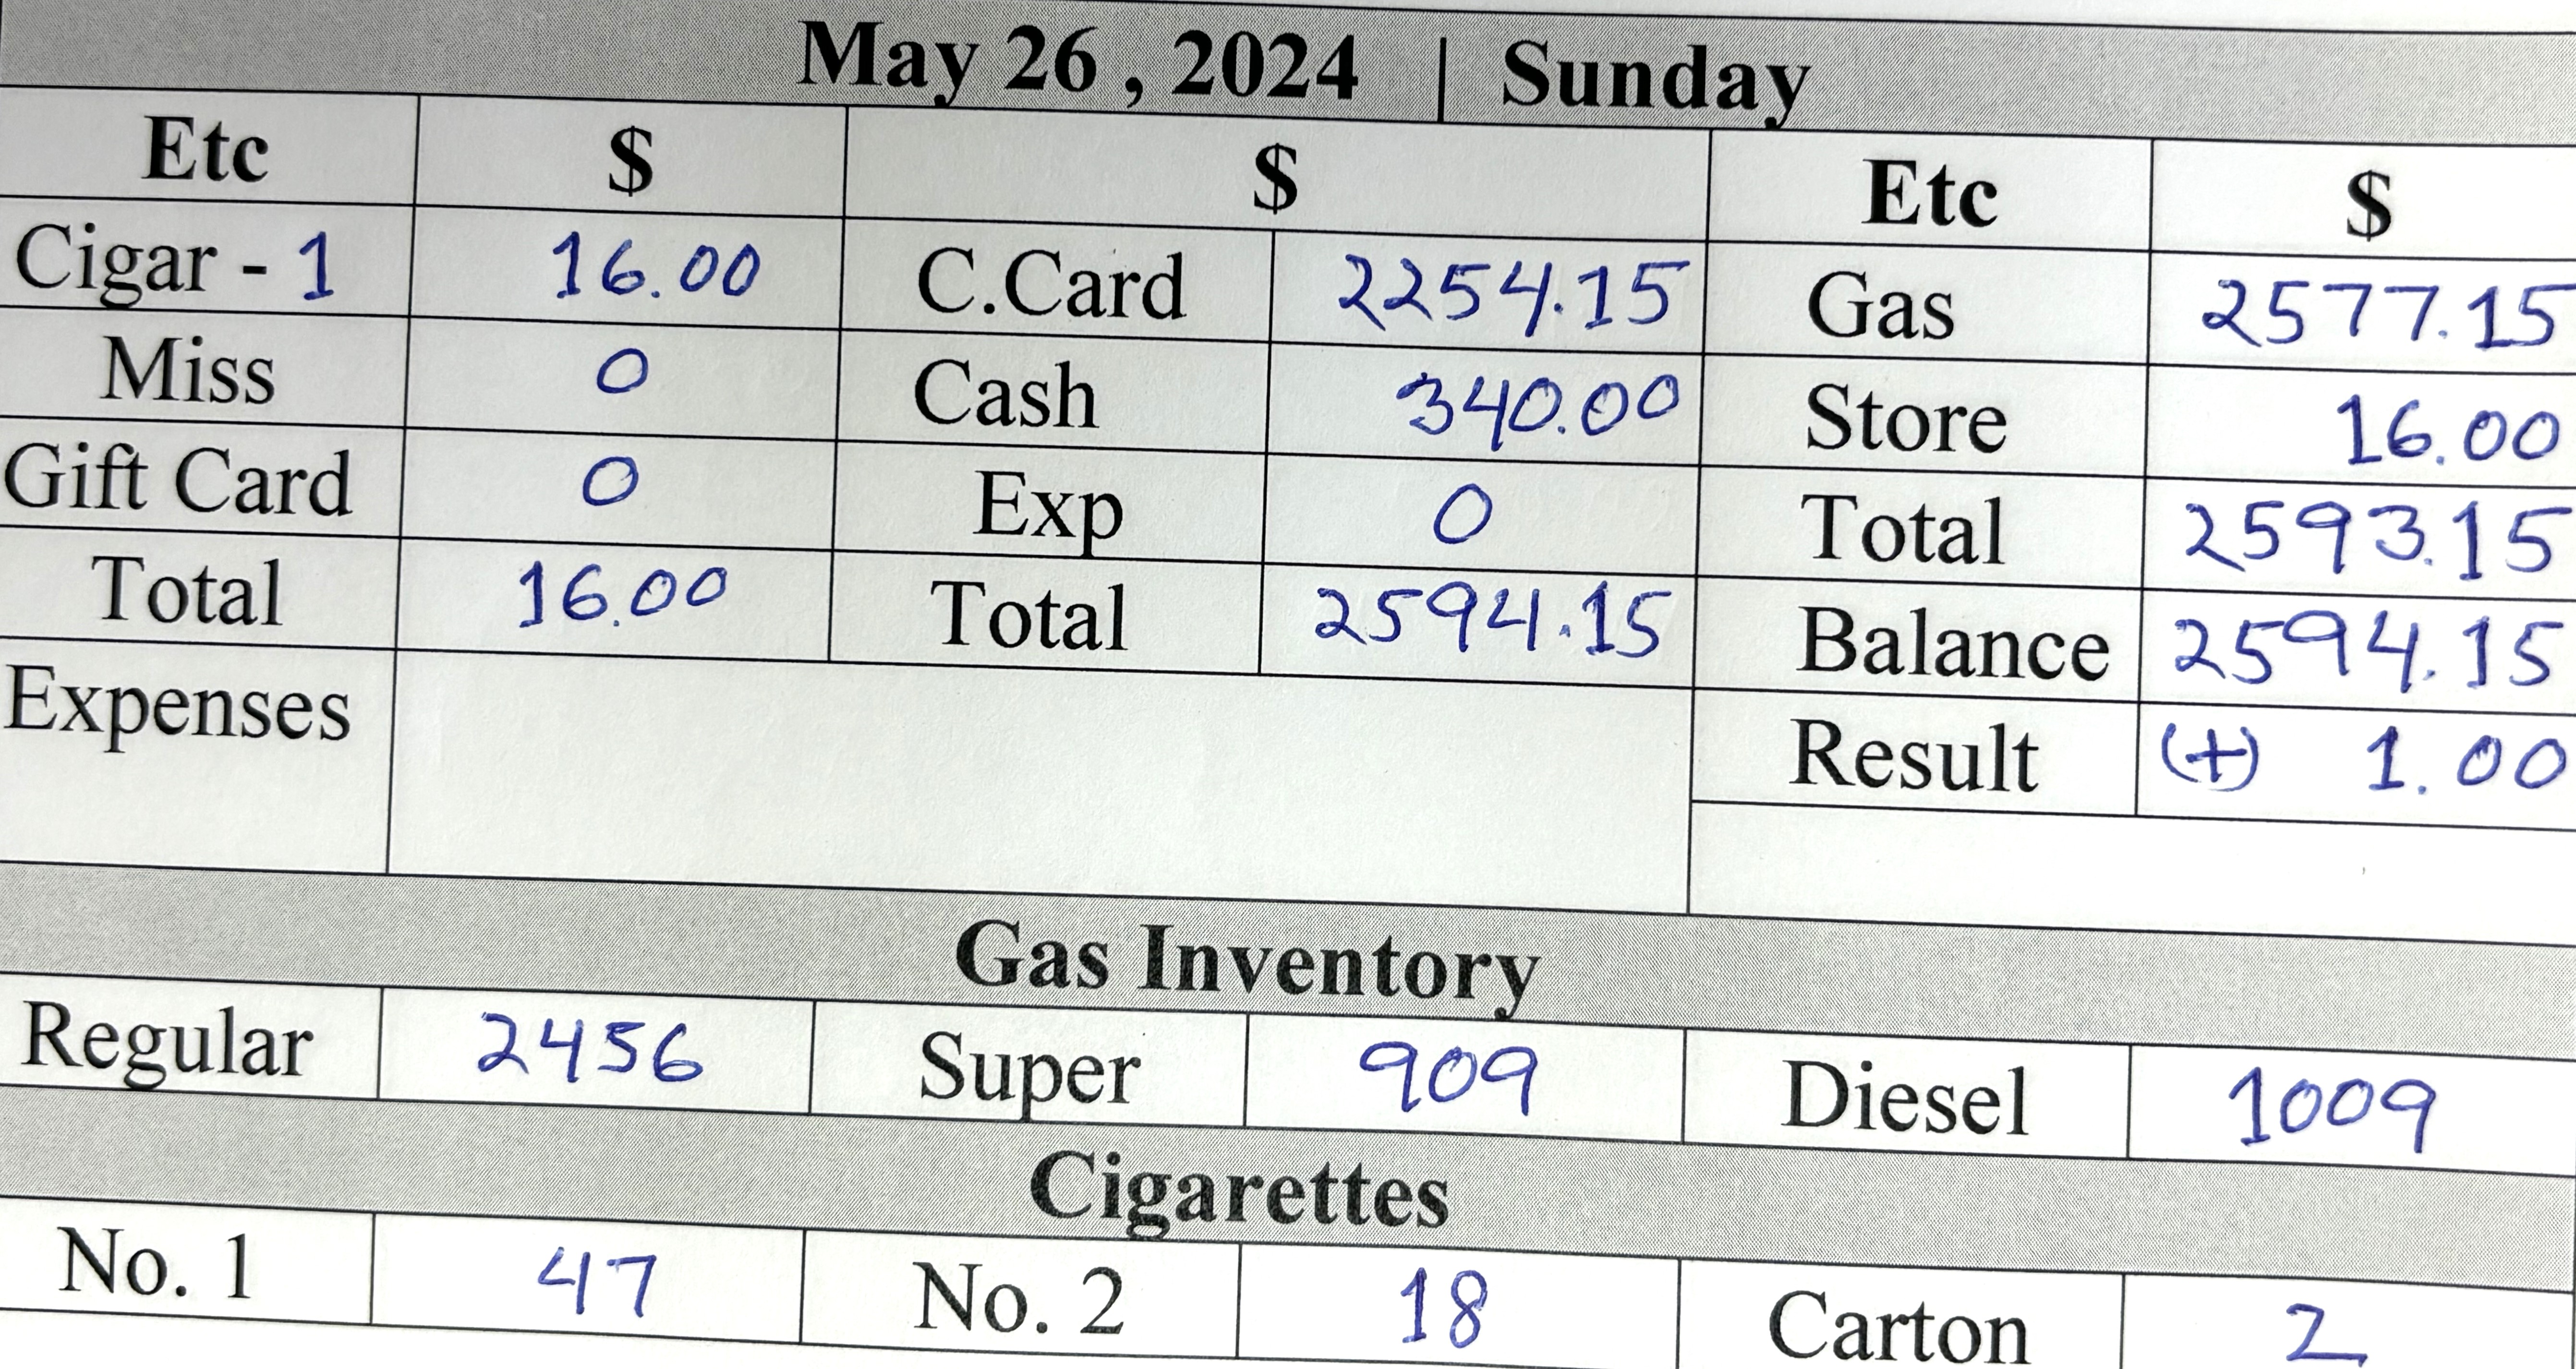 May 26 , 2024 | Sunday
Etc $ $ Etc $
Cigar - 1 16.00 C.Card 2254.15 Gas 2577.15
Miss 0 Cash 340.00 Store 16.00
Gift Card 0 Exp 0 Total 2593.15
Total 16.00 Total 2594.15 Balance 2594.15
Expenses Result (+) 1.00
Gas Inventory
Regular 2456 Super 909 Diesel 1009
Cigarettes
No. 1 47 No. 2 18 Carton 2